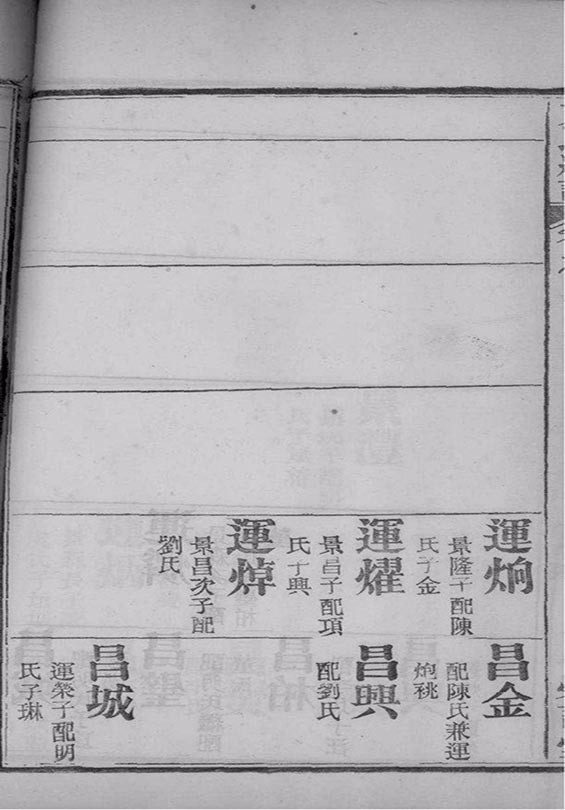 運炯
景隆子配陳
氏子金
運燿
景昌子配項
氏子興
運焯
景昌次子配
劉氏
昌金
配陳氏兼運
炯祧
昌興
配劉氏
昌城
運榮子配明
氏子琳